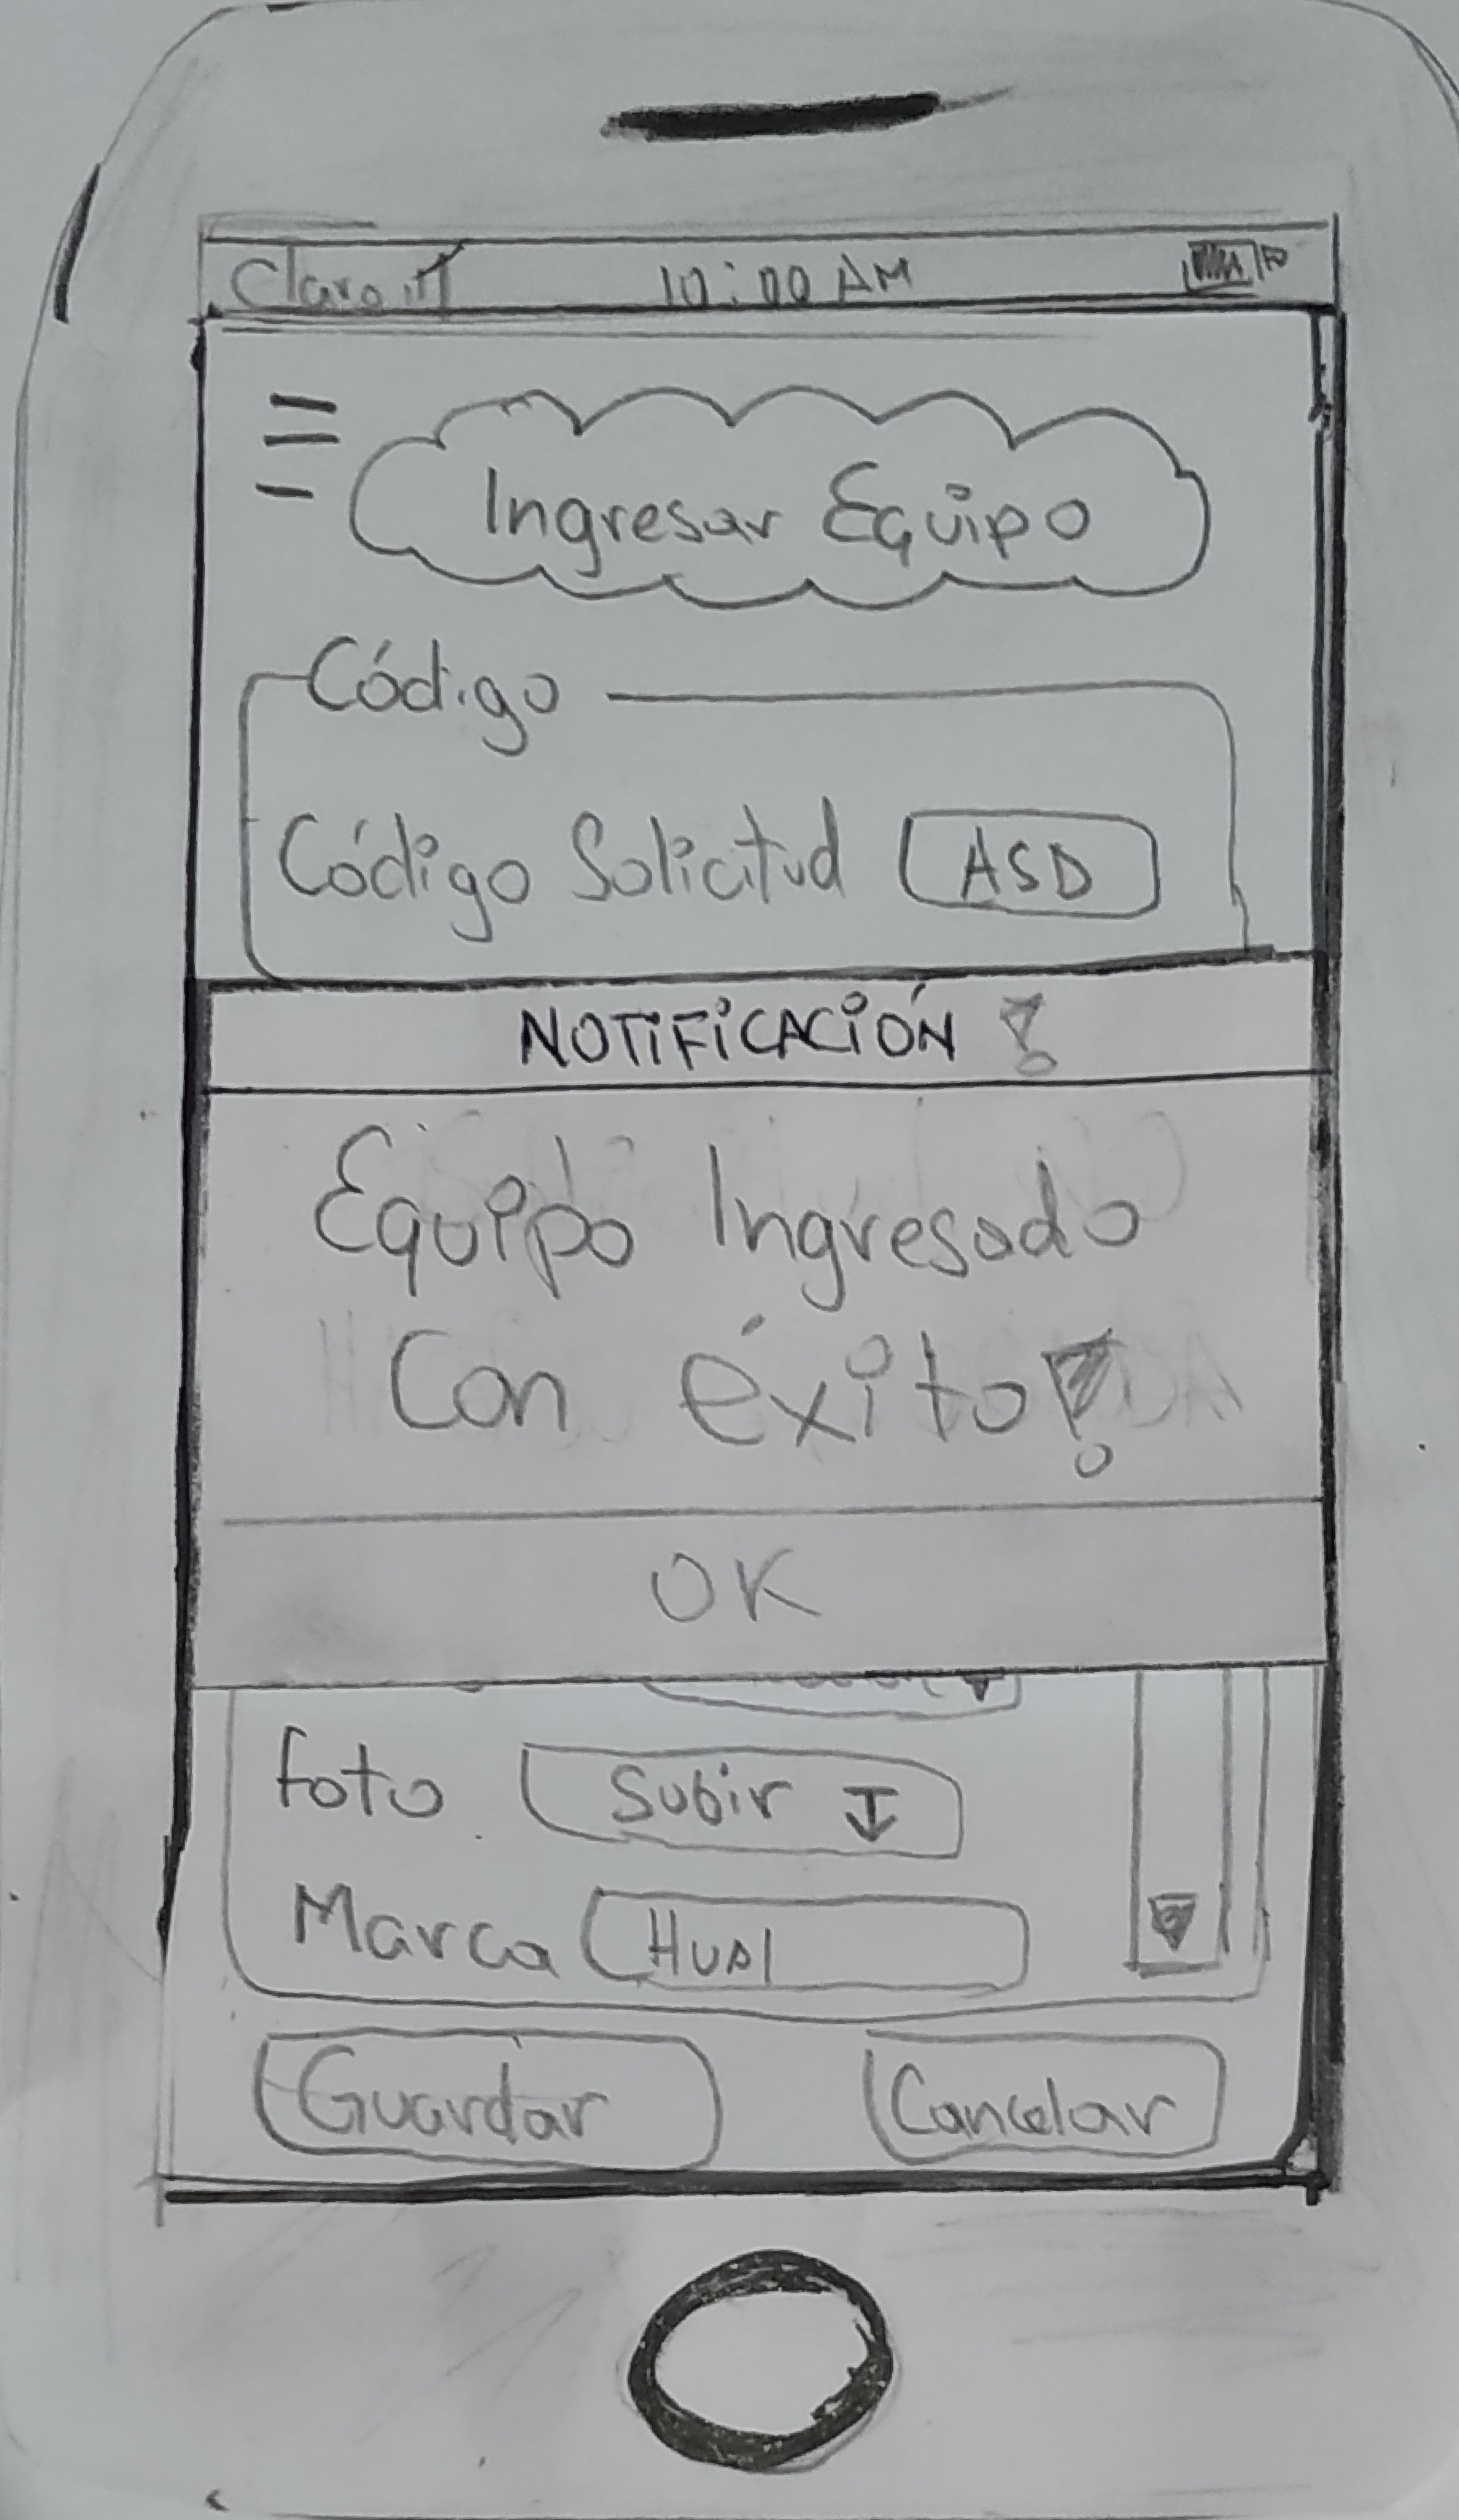 Claro 10:00 AM
Ingresar Equipo
Código
Código Solicitud ASD
NOTIFICACIÓN !
Equipo Ingresado
Con éxito!
OK
foto Subir
Marca HUAI
Guardar Cancelar